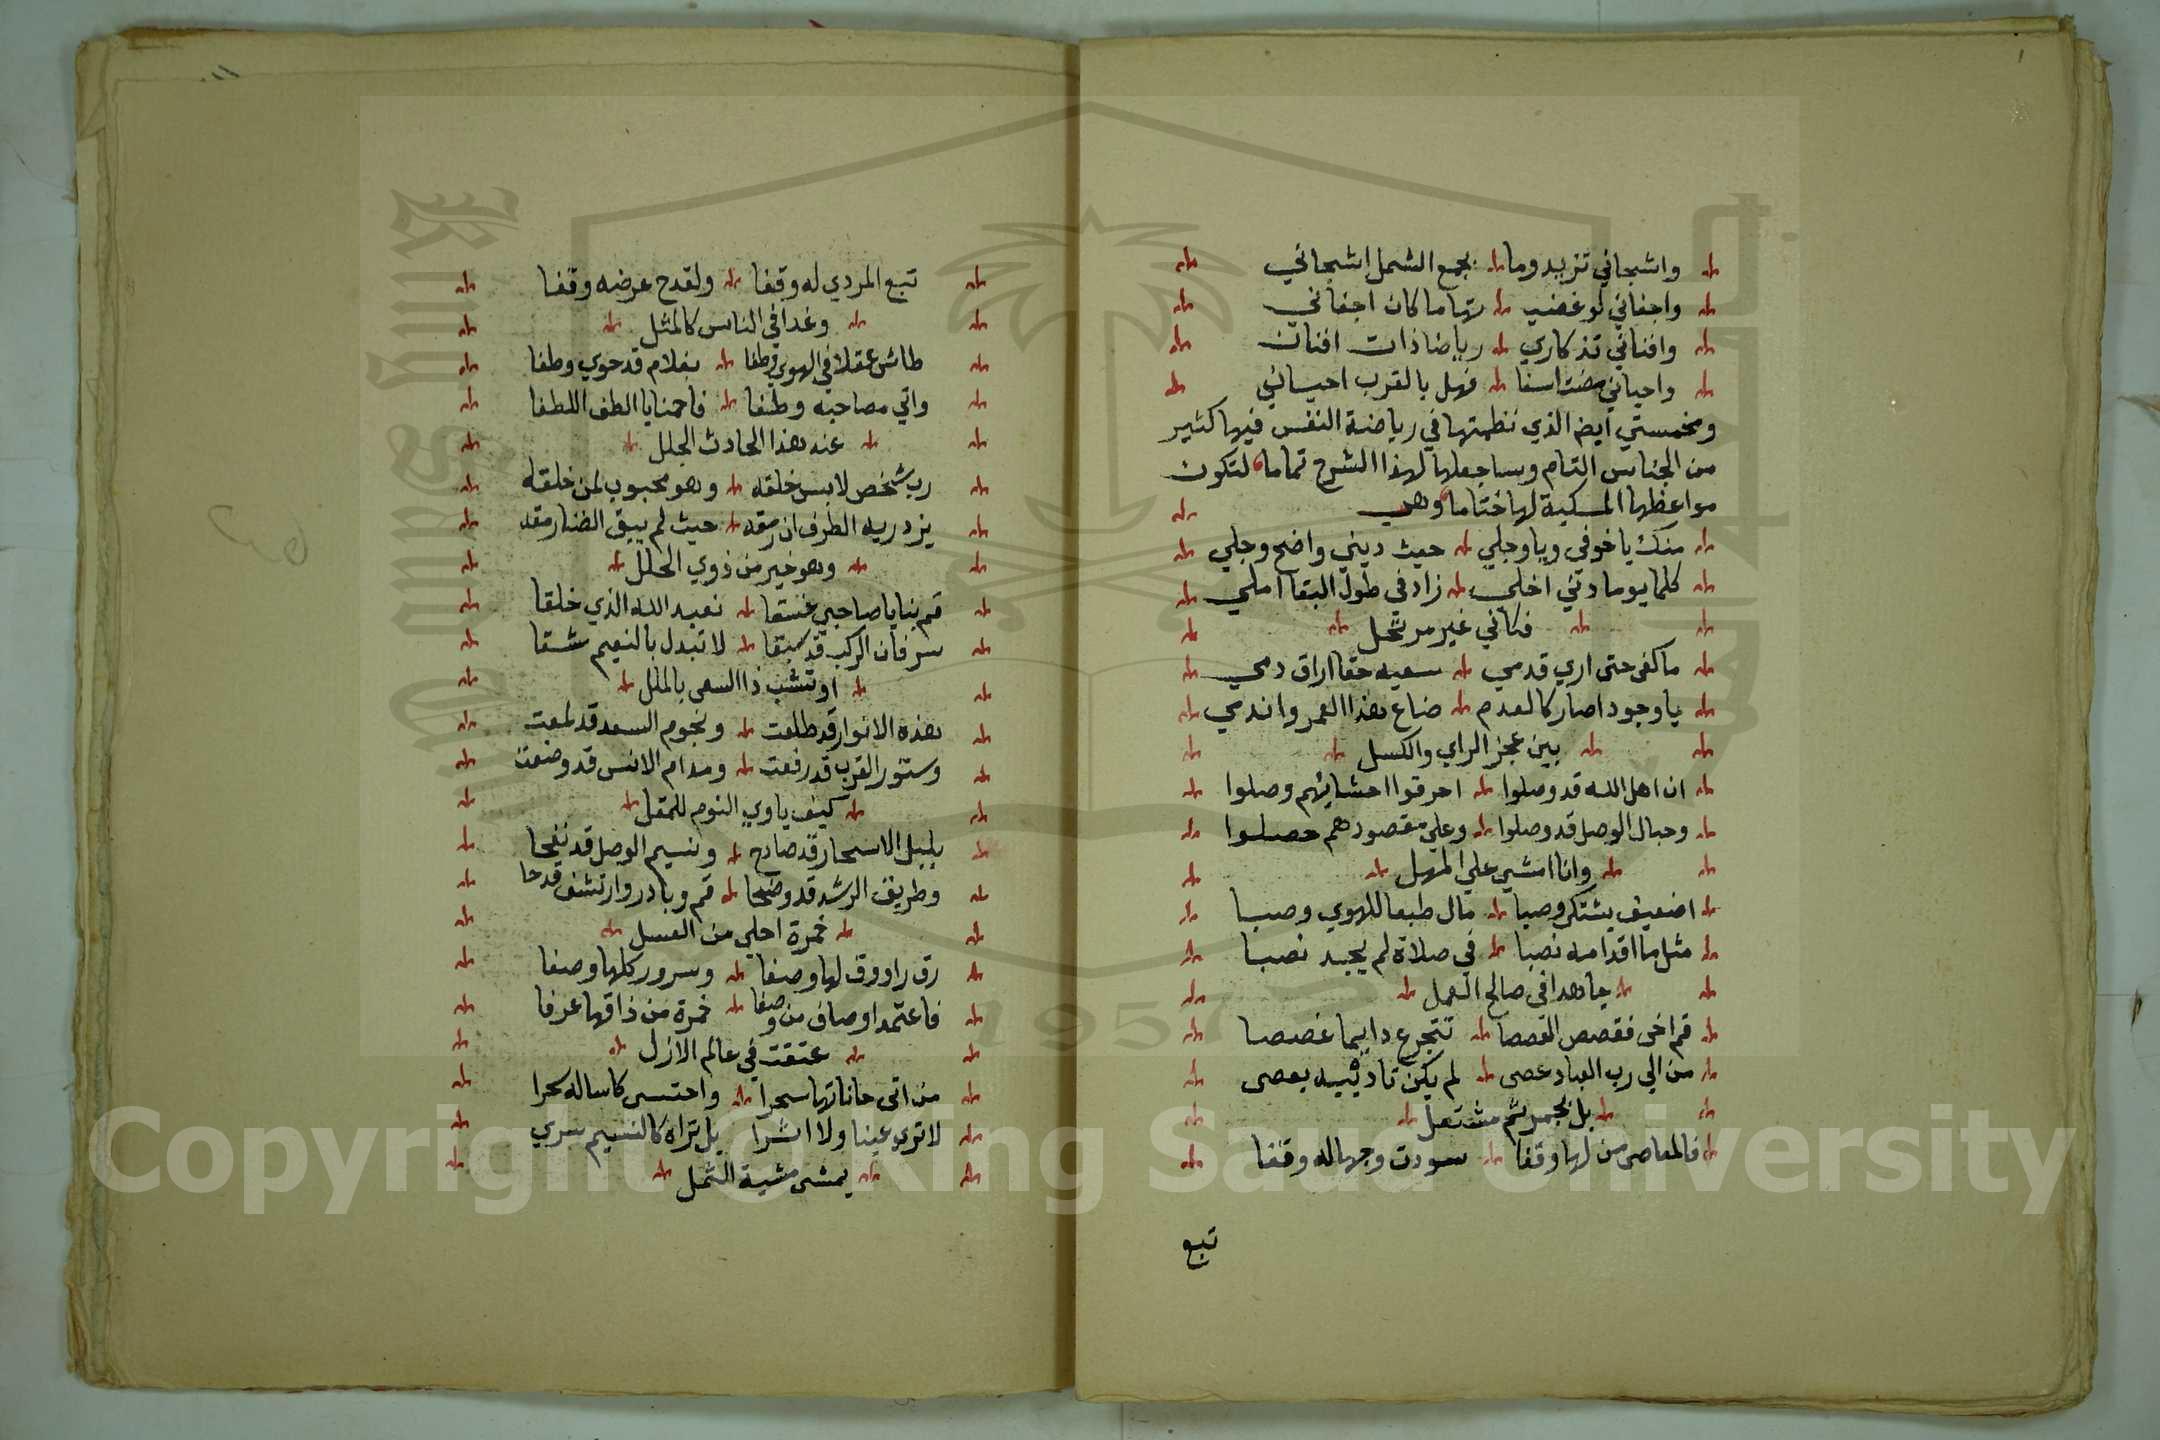 واشجاني تزيد وما بجمع الشمل اشجاني
واجفاني لو غضيب تها ما كان اجفاني
وافناني تذكاري رياضا ذات افنان
واحياني مضت اسفا فهل بالقرب احياني
ومخمستي ايضا الذي نظمتها في رياضة النفس فيها كثير
من الجناس التام وساجعلها لهذا الشرح تماما لتكون
مواعظها المسكية لها ختاما وهي
منك يا خوفي ويا وجلي حيث ديني واضح وجلي
كلما يوما دنى اجلي زاد في طول البقا املي
فكاني غير مرتحل
ما كفى حتى اري قدمي سعيه حقا اراق دمي
يا وجودا صار كالعدم ضاع هذا العمر واندمي
بين عجز الراي والكسل
ان اهل الله قد وصلوا احرقوا احشائهم وصلوا
وحبال الوصل قد وصلوا وعلي مقصودهم حصلوا
وانا امشي علي المهل
اضعيف يشتكي وصبا مال طبعا للهوي وصبا
مثل ما اقدامه نصبا في صلاة لم يجد نصبا
جاهدا في صالح العمل
قم اخى فقصص القصصا تتجرع دايما غصصا
من الي رب العباد عصى لم يكن تاديبه بعصى
بل بجمر ثم مشتعل
فالمعاصى من لها وقفا سودت وجها له وقفا
تبع
تبع المردي له وقفا ولقدح عرضه وقفا
وغدا في الناس كالمثل
طائش عقلا في الهوي وطفا بغلام قد حوي وطفا
واتي مصاحبه وطفا فاحمنا يا الطف اللطفا
عند هذا الحادث الجلل
رب شخص لابس خلقه وهو محبوب لمن خلقه
يزدريه الطرف ان رمقه حيث لم يبق الضنا رمقه
وهو خير من ذوي الحلل
قم بنا يا صاحبي غسقا نعبد الله الذي خلقا
سر فان الركب قد سبقا لا تبدل بالنعيم شقا
او تشب ذا السعى بالملل
هذه الانوار قد طلعت ونجوم السعد قد لمعت
وستور القرب قد رفعت ومدام الانس قد وضعت
كيف ياوي النوم للمقل
بلبل الاسحار قد صادح ونسيم الوصل قد نفحا
وطريق الرشد قد وضحا قم وبادر وارتشف قدحا
خمرة احلي من العسل
رق راووق لها وصفا وسرور كلها وصفا
فاعتمد اوصاف من وصفا خمرة من ذاقها عرفا
عتقت في عالم الازل
من اتى حاناتها سحرا واحتسى كاسا له سحرا
لا تري عينا ولا اثرا بل تراه كالنسيم سري
يمشى مشية الثمل
Copyright © King Saud University
King Saud University
1957